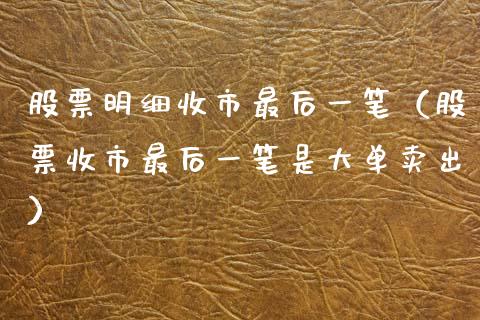 股票明细收市最后一笔（股
票收市最后一笔是大单卖出
）